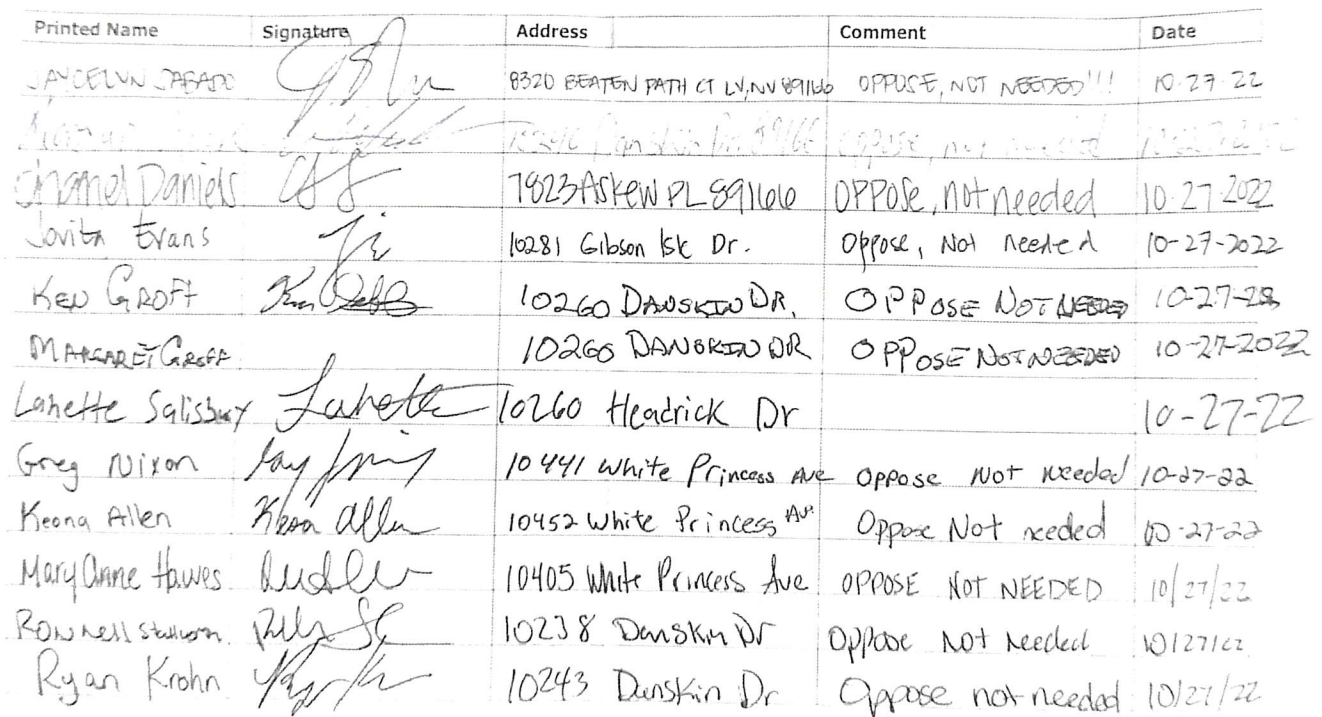 Printed Name Signature Address Comment Date
JAYCELYN SABADO 8320 BEATEN PATH CT LV, NV 89166 OPPOSE, NOT NEEDED!!! 10-27-22
Danskin Dr. 89166 oppose, not needed
Chamel Daniels 7823 ASKEW PL 89166 OPPOSE, not needed 10.27-2022
Jovita Evans 10281 Gibson Isle Dr. Oppose, Not needed 10-27-2022
KEN GROFF 10260 DANSKIN DR. OPPOSE NOT NEEDED 10-27-22
MARGARET GROFF 10260 DANSKIN DR OPPOSE NOT NEEDED 10-27-2022
Lanette Salisbury Lanette 10260 Headrick Dr 10-27-22
Greg Nixon 10441 White Princess Ave Oppose Not Needed 10-27-22
Keona Allen Keona Allen 10452 White Princess Av. Oppose Not needed 10-27-22
Mary Anne Hawes 10405 White Princess Ave OPPOSE NOT NEEDED 10/27/22
RONNell Stallworn 10238 Danskin Dr Oppose Not Needed 10/27/22
Ryan Krohn 10243 Danskin Dr Oppose not needed 10/27/22